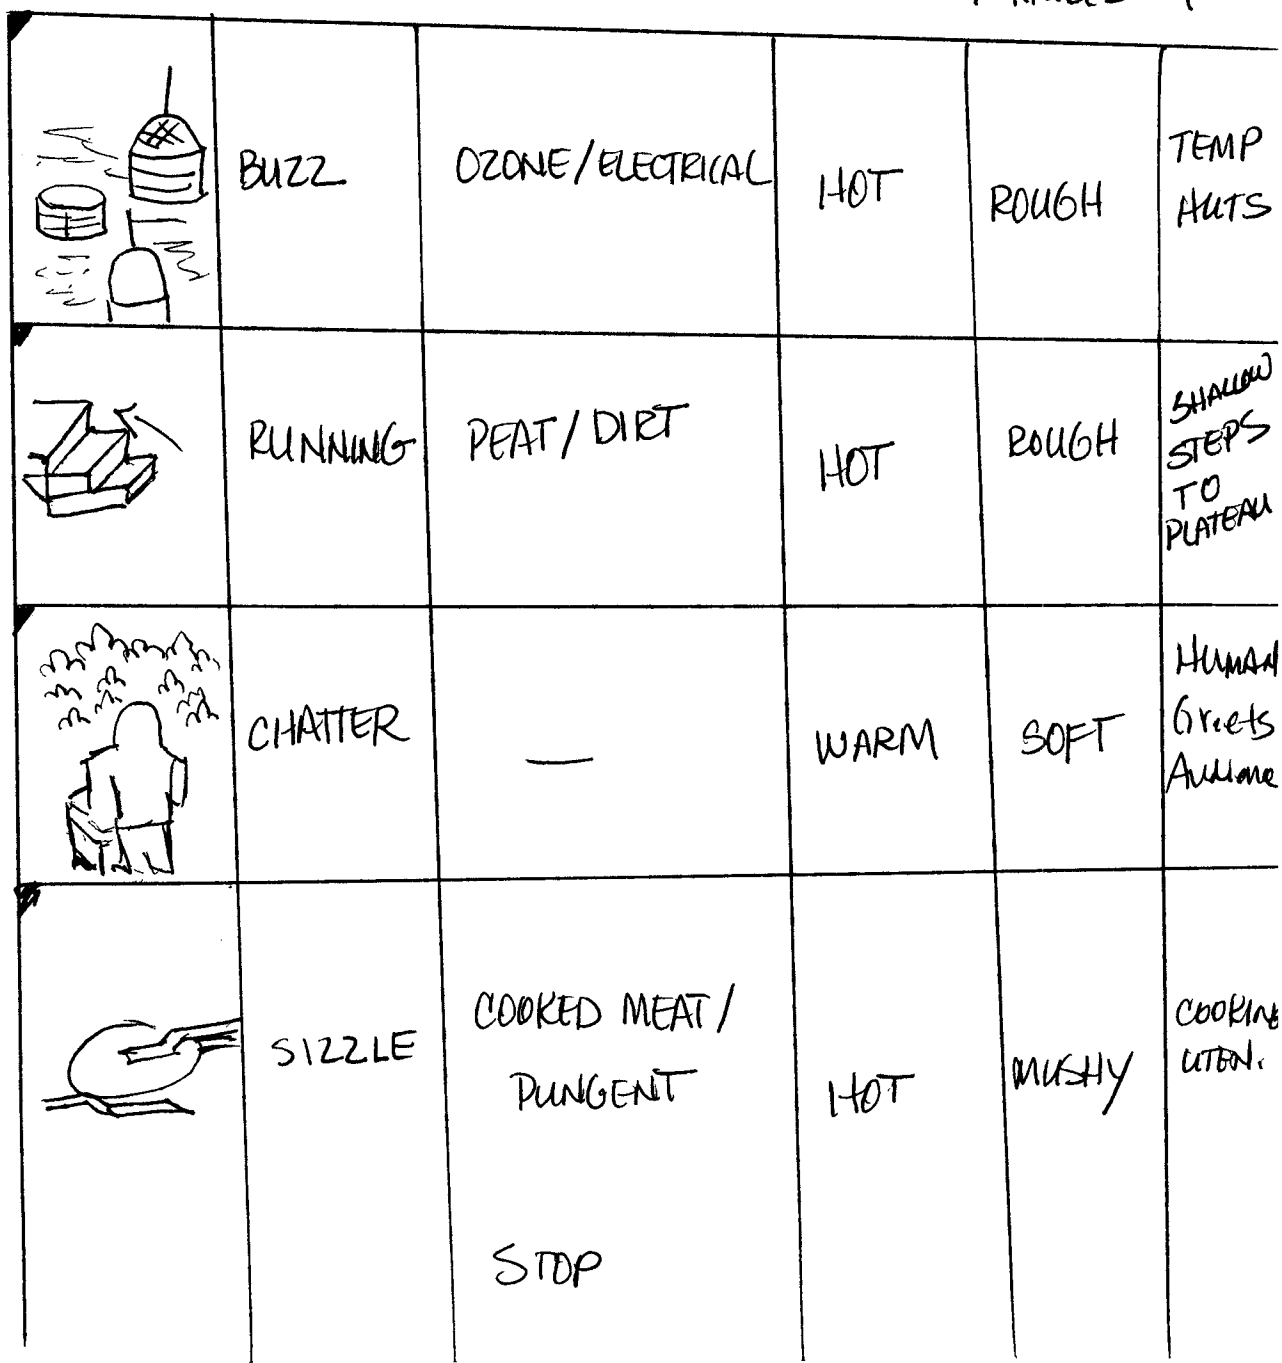 BUZZ OZONE/ELECTRICAL HOT ROUGH TEMP
HUTS
RUNNING PEAT/DIRT HOT ROUGH SHALLOW
STEPS
TO
PLATEAU
CHATTER — WARM SOFT HUMAN
Greets
SIZZLE COOKED MEAT/
PUNGENT HOT MUSHY COOKING
UTEN.
STOP